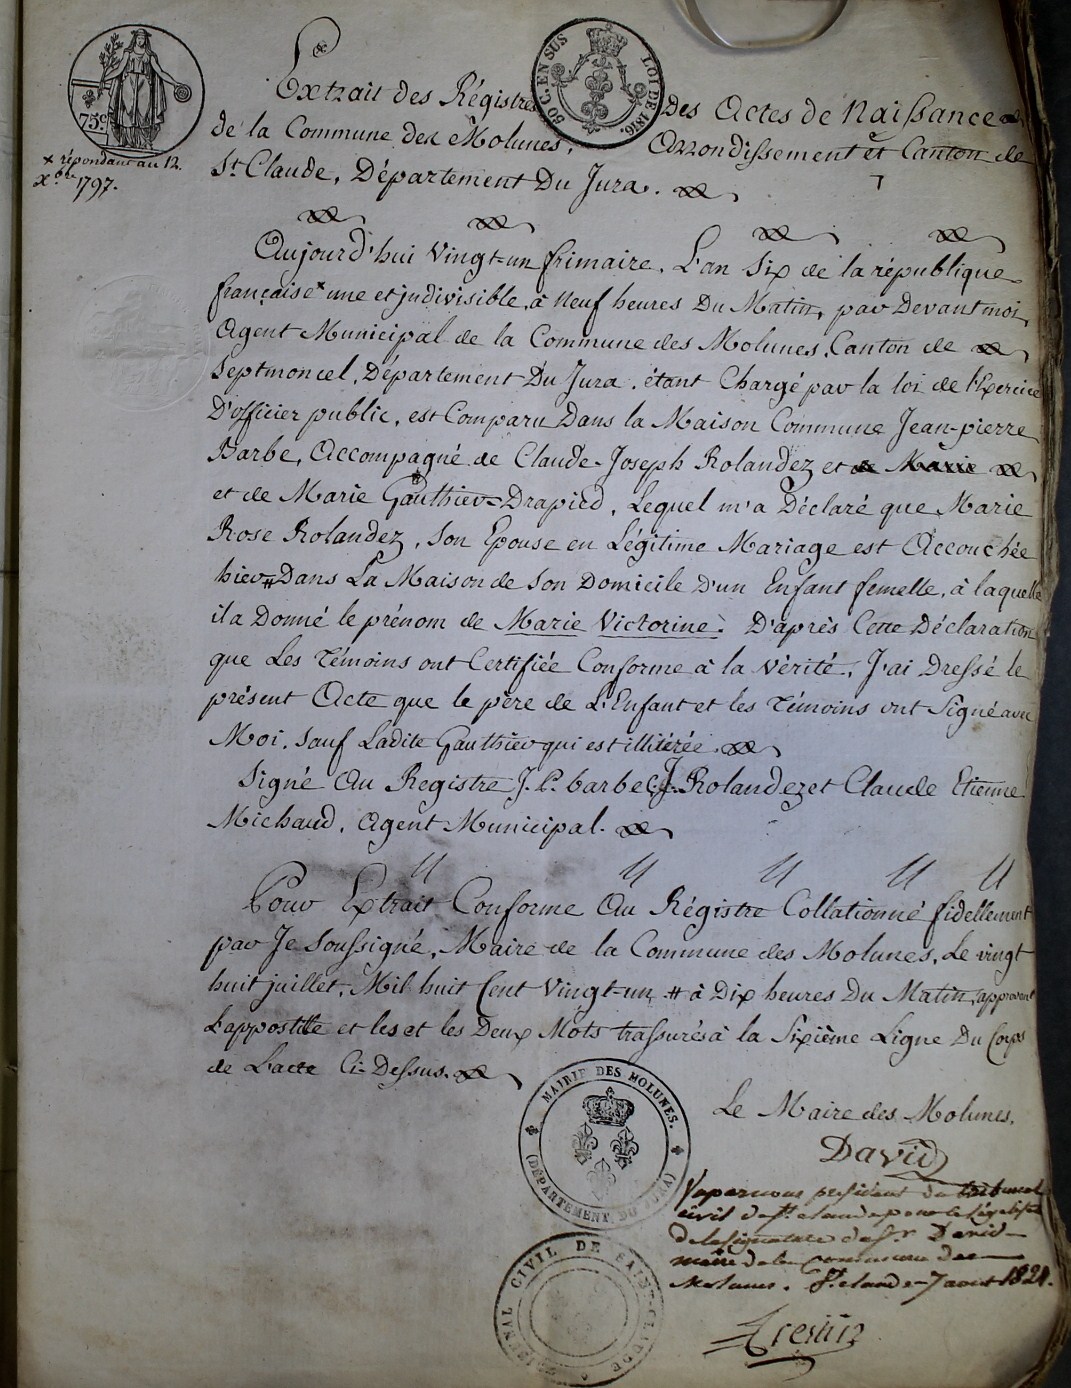 75.c
50 C. EN SUS LOI DE 1816.
Extrait des Régistres des Actes de Naissance
de la Commune des Molunes, Arrondissement et Canton de
St. Claude, Département Du Jura.
x répondant au 12.
Xbre 1797.
Aujourd'hui Vingt-un frimaire, L'an Six de la république
française x une et jndivisible, à Neuf heures Du Matin, par Devant moi,
Agent Municipal de la Commune des Molunes, Canton de
Septmoncel, Département Du Jura, étant Chargé par la loi de l'Exercice
D'officier public, est Comparu Dans la Maison Commune Jean-pierre
Barbe, Accompagné de Claude-Joseph Rolandez et de Marie
et de Marie Gauthier-Drapied, Lequel m'a Déclaré que Marie
Rose Rolandez, Son Epouse en Légitime Mariage est Accouchée
hier # Dans La Maison de Son Domicile D'un Enfant femelle, à laquelle
il a Donné le prénom de Marie Victorine. D'après Cette Déclaration
que Les Témoins ont Certifiée Conforme à la vérité, J'ai Dressé le
présent Acte que le père de L'Enfant et les Témoins ont Signé avec
Moi, Sauf Ladite Gauthier qui est illitérée.
Signé Au Registre J. P. barbe C. J. Rolandez et Claude Etienne
Michaud, Agent Municipal.
Pour Extrait Conforme Au Régistre Collationné fidellement
par Je Soussigné, Maire de la Commune des Molunes, Le vingt
huit juillet, Mil huit Cent Vingt-un, # à Dix heures Du Matin, approuvant
L'appostille et les et les Deux Mots trassurés à la Sixième Ligne Du Corps
de L'acte Ci-Dessus.
MAIRIE DES MOLUNES.
(DÉPARTEMENT DU JURA)
Le Maire des Molunes,
David
Vu par nous président du tribunal
civil de St. claude pour le Légalisé
de la signature du Sr. David
maire de la commune des
Molunes. St. claude 7 aout 1821.
TRIBUNAL CIVIL DE SAINT-CLAUDE